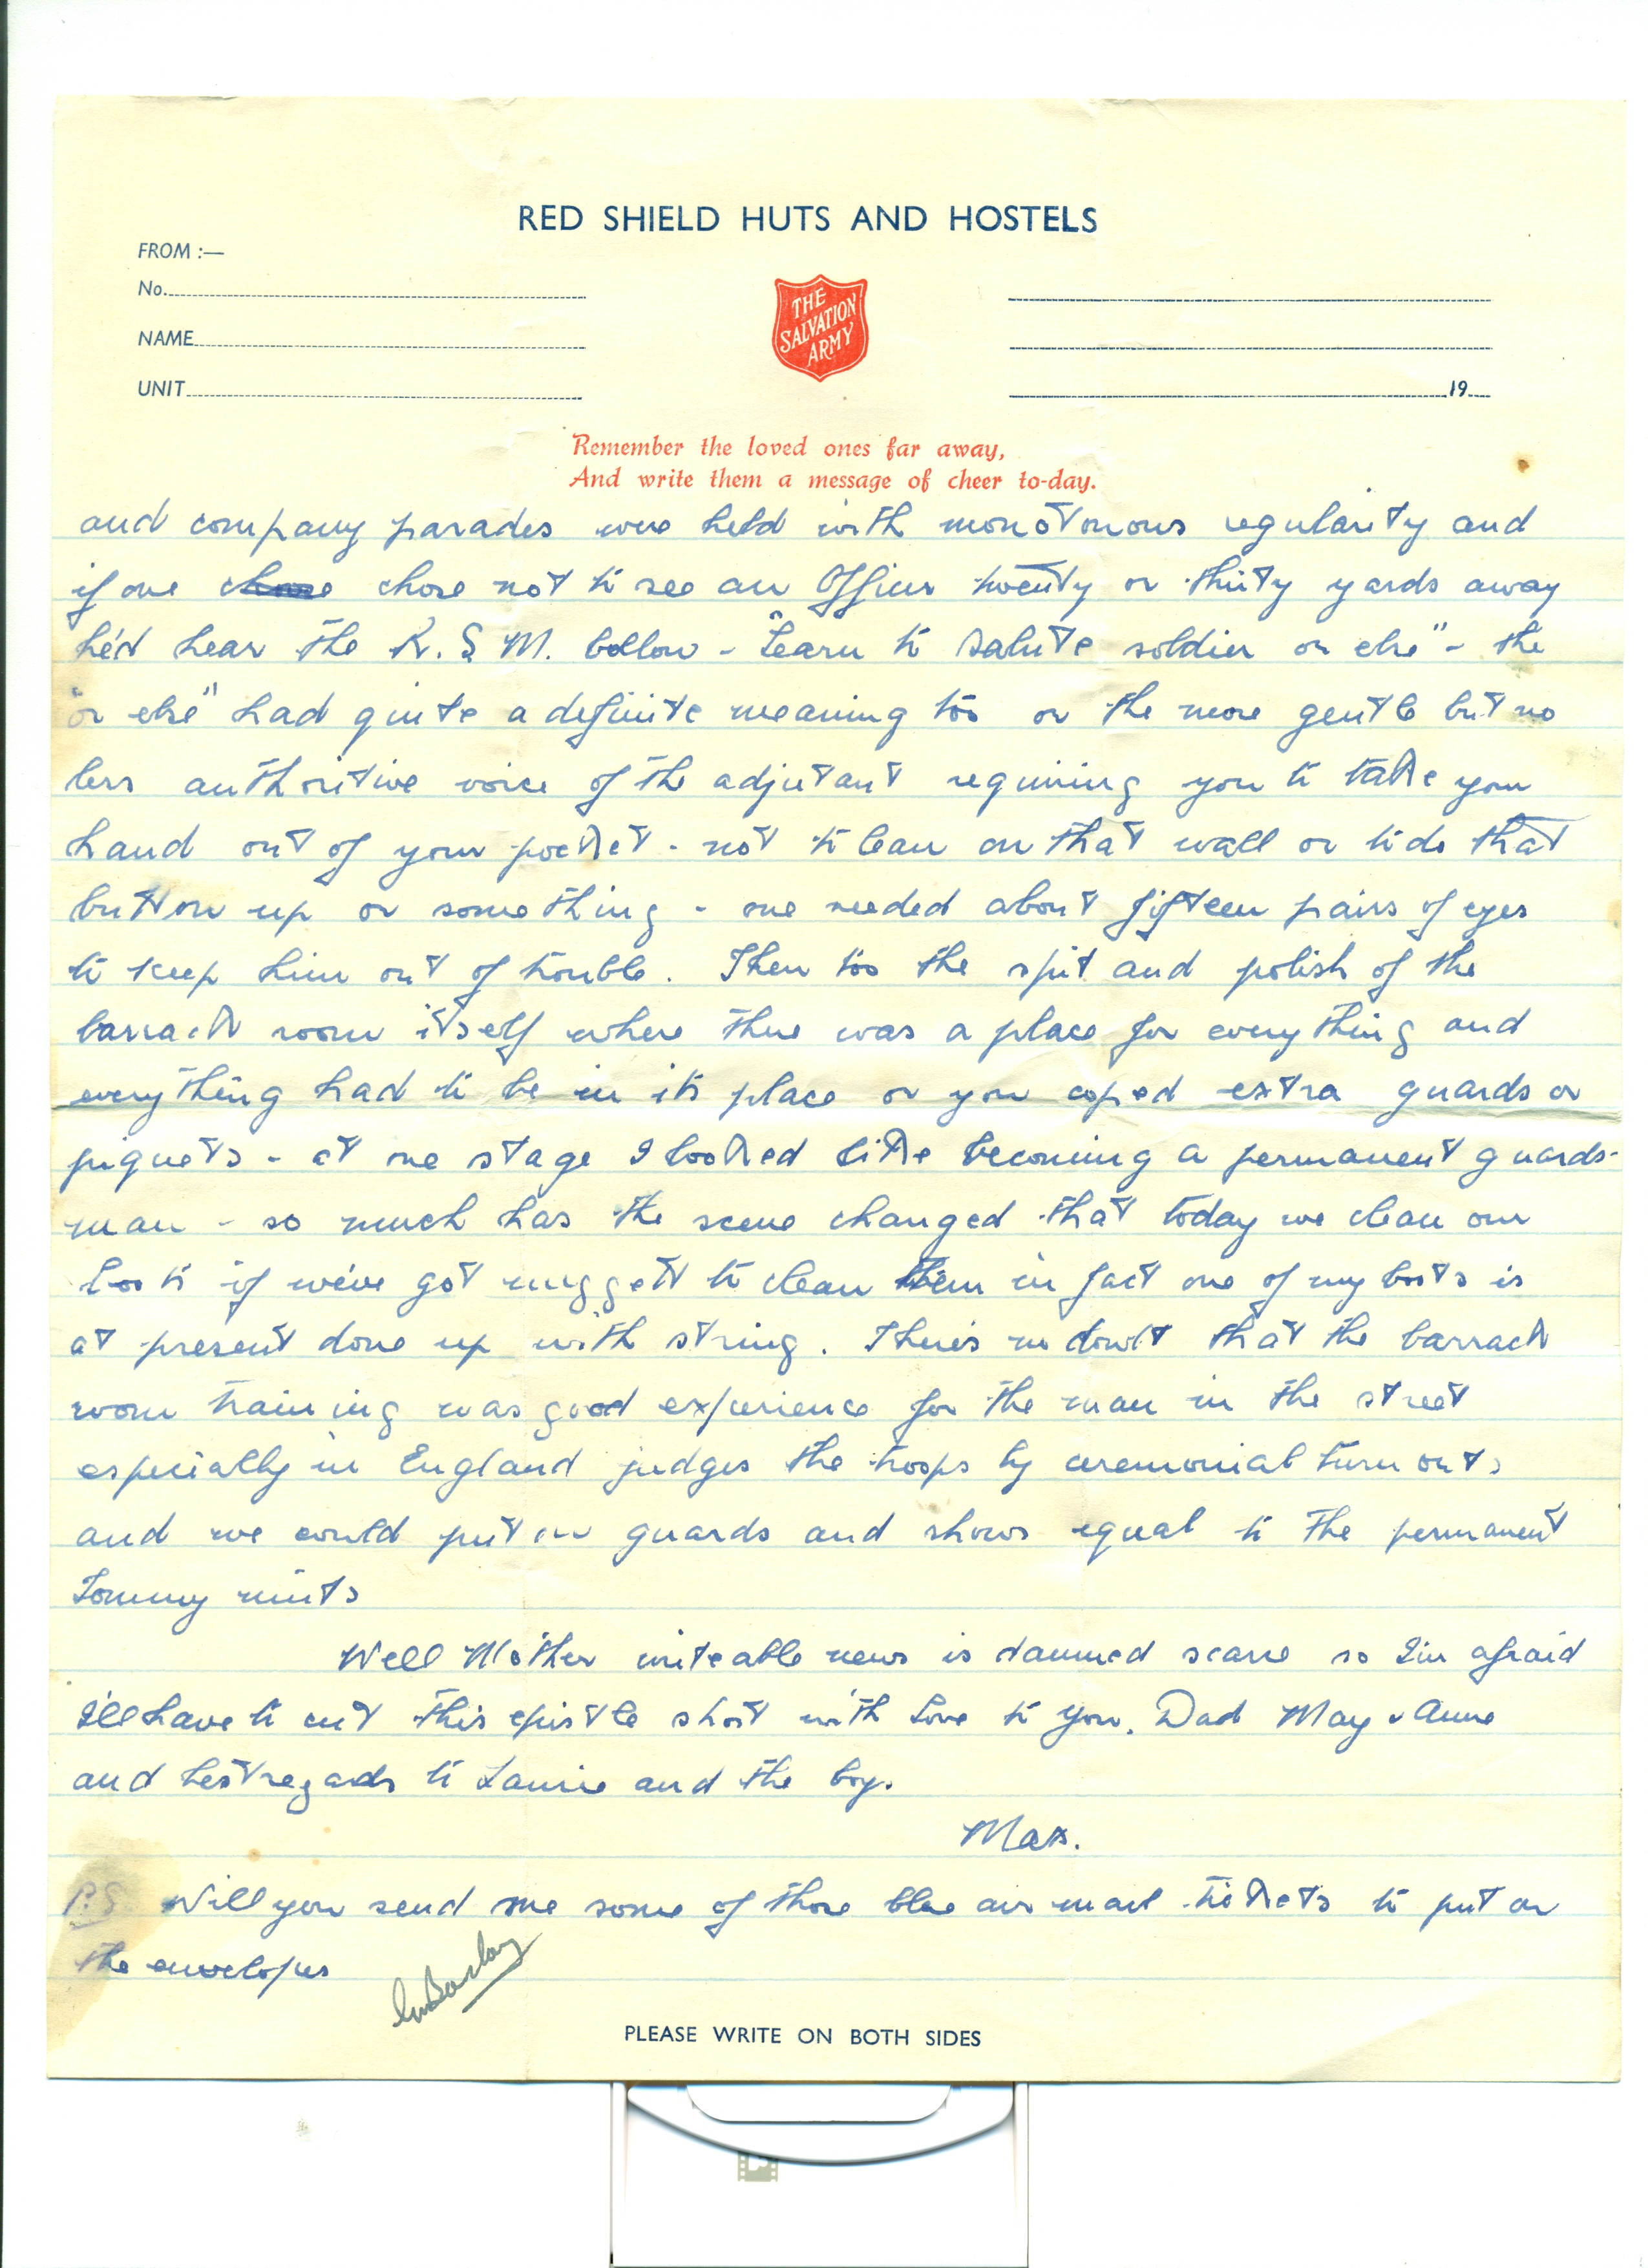 RED SHIELD HUTS AND HOSTELS
FROM :—
No.
NAME
UNIT
THE
SALVATION
ARMY
19
Remember the loved ones far away,
And write them a message of cheer to-day.
and company parades were held with monotonous regularity and
if one chose chose not to see an Officer twenty or thirty yards away
he'd hear the R. S. M. bellow - "Learn to salute soldier or else" - the
"or else" had quite a definite meaning too or the more gentle but no
less authoritive voice of the adjutant requiring you to take you
hand out of your pocket - not to lean on that wall or to do that
button up or something - one needed about fifteen pairs of eyes
to keep him out of trouble. Then too the spit and polish of the
barrack room itself where there was a place for everything and
everything had to be in its place or you coped extra guards or
piquets - at one stage I looked like becoming a permanent guards-
man - so much has the scene changed that today we clean our
boots if we've got nuggett to clean them in fact one of my boots is
at present done up with string. There's no doubt that the barrack
room training was good experience for the man in the street
especially in England judges the troops by ceremonial turn outs
and we could put on guards and shows equal to the permanent
Tommy units
Well Mother writeable news is damned scarce so I'm afraid
I'll have to cut this epistle short with love to you, Dad May & Anne
and best regards to Laurie and the boy.
Max.
P.S. Will you send me some of those blue air mail tickets to put on
the envelopes
Barclay
PLEASE WRITE ON BOTH SIDES